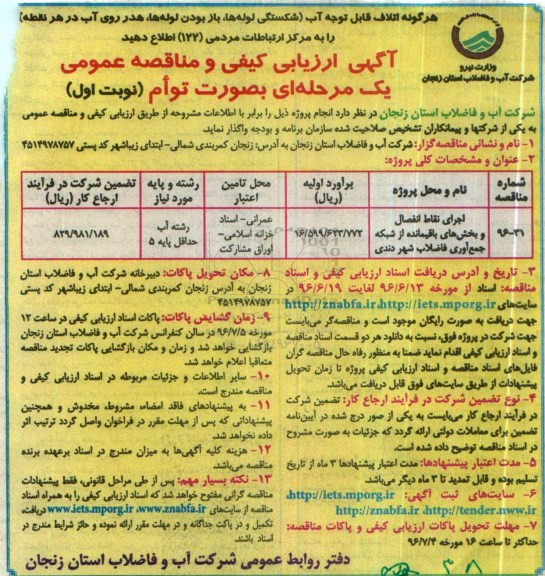 هرگونه اتلاف قابل توجه آب (شکستگی لوله‌ها، باز بودن لوله‌ها، هدر روی آب در هر نقطه)
را به مرکز ارتباطات مردمی (۱۲۲) اطلاع دهید
وزارت نیرو
شرکت آب و فاضلاب استان زنجان
آگهی ارزیابی کیفی و مناقصه عمومی
یک مرحله‌ای بصورت توأم (نوبت اول)
شرکت آب و فاضلاب استان زنجان در نظر دارد انجام پروژه ذیل را برابر با اطلاعات مشروحه از طریق ارزیابی کیفی و مناقصه عمومی
به یکی از شرکتها و پیمانکاران تشخیص صلاحیت شده سازمان برنامه و بودجه واگذار نماید.
۱- نام و نشانی مناقصه‌گزار: شرکت آب و فاضلاب استان زنجان به آدرس: زنجان کمربندی شمالی- ابتدای زیباشهر کد پستی ۴۵۱۴۹۷۸۷۵۷
۲- عنوان و مشخصات کلی پروژه:
شماره مناقصه
نام و محل پروژه
برآورد اولیه (ریال)
محل تامین اعتبار
رشته و پایه مورد نیاز
تضمین شرکت در فرآیند ارجاع کار (ریال)
۹۶-۳۱
اجرای نقاط انفصال
و بخش‌های باقیمانده از شبکه
جمع‌آوری فاضلاب شهر دندی
۱۶/۵۹۹/۶۲۳/۷۷۳
عمرانی- اسناد
خزانه اسلامی-
اوراق مشارکت
رشته آب
حداقل پایه ۵
۸۲۹/۹۸۱/۱۸۹
۳- تاریخ و آدرس دریافت اسناد ارزیابی کیفی و اسناد
مناقصه: اسناد از مورخه ۹۶/۶/۱۳ لغایت ۹۶/۶/۱۹ در
سایت‌های http://iets.mporg.ir، http://znabfa.ir
جهت دریافت به صورت رایگان موجود است و مناقصه‌گر می‌بایست
جهت شرکت در پروژه فوق، نسبت به دانلود هر دو قسمت اسناد مناقصه
و اسناد ارزیابی کیفی اقدام نماید ضمنا به منظور رفاه حال مناقصه گران
فایل‌های اسناد مناقصه و اسناد ارزیابی کیفی پروژه تا زمان تحویل
پیشنهادات از طریق سایت‌های فوق قابل دریافت می‌باشد.
۴- نوع تضمین شرکت در فرآیند ارجاع کار: تضمین شرکت
در فرآیند ارجاع کار می‌بایست به یکی از صور درج شده در آیین‌نامه
تضمین برای معاملات دولتی ارائه گردد که جزئیات به صورت مشروح
در اسناد مناقصه توضیح داده شده است.
۵- مدت اعتبار پیشنهادها: مدت اعتبار پیشنهادها ۳ ماه از تاریخ
تسلیم بوده و قابل تمدید تا ۳ ماه دیگر می‌باشد.
۶- سایت‌های ثبت آگهی: http://iets.mporg.ir،
http://tender.nww.ir، http://znabfa.ir
۷- مهلت تحویل پاکات ارزیابی کیفی و پاکات مناقصه:
حداکثر تا ساعت ۱۶ مورخه ۹۶/۷/۴
۸- مکان تحویل پاکات: دبیرخانه شرکت آب و فاضلاب استان
زنجان به آدرس زنجان کمربندی شمالی- ابتدای زیباشهر کد پستی
۴۵۱۴۹۷۸۷۵۷
۹- زمان گشایش پاکات: پاکات اسناد ارزیابی کیفی در ساعت ۱۲
مورخه ۹۶/۷/۵ در سالن کنفرانس شرکت آب و فاضلاب استان زنجان
بازگشایی خواهد شد و زمان و مکان بازگشایی پاکات تجدید مناقصه
متعاقبا اعلام خواهد شد.
۱۰- سایر اطلاعات و جزئیات مربوطه در اسناد ارزیابی کیفی و
مناقصه مندرج است.
۱۱- به پیشنهادهای فاقد امضاء، مشروط، مخدوش و همچنین
پیشنهاداتی که پس از مهلت مقرر در فراخوان واصل گردد ترتیب اثر
داده نخواهد شد.
۱۲- هزینه کلیه آگهی‌ها به میزان مندرج در اسناد برعهده برنده
مناقصه می‌باشد.
۱۳- نکته بسیار مهم: پس از طی مراحل قانونی، فقط پیشنهادات
مناقصه گرانی مفتوح خواهد شد که اسناد ارزیابی کیفی را به همراه اسناد
مناقصه از سایت‌های www.znabfa.ir، www.iets.mporg.ir دریافت،
تکمیل و در پاکت جداگانه و در مهلت مقرر ارائه نموده و حائز شرایط مندرج در
اسناد باشند.
دفتر روابط عمومی شرکت آب و فاضلاب استان زنجان